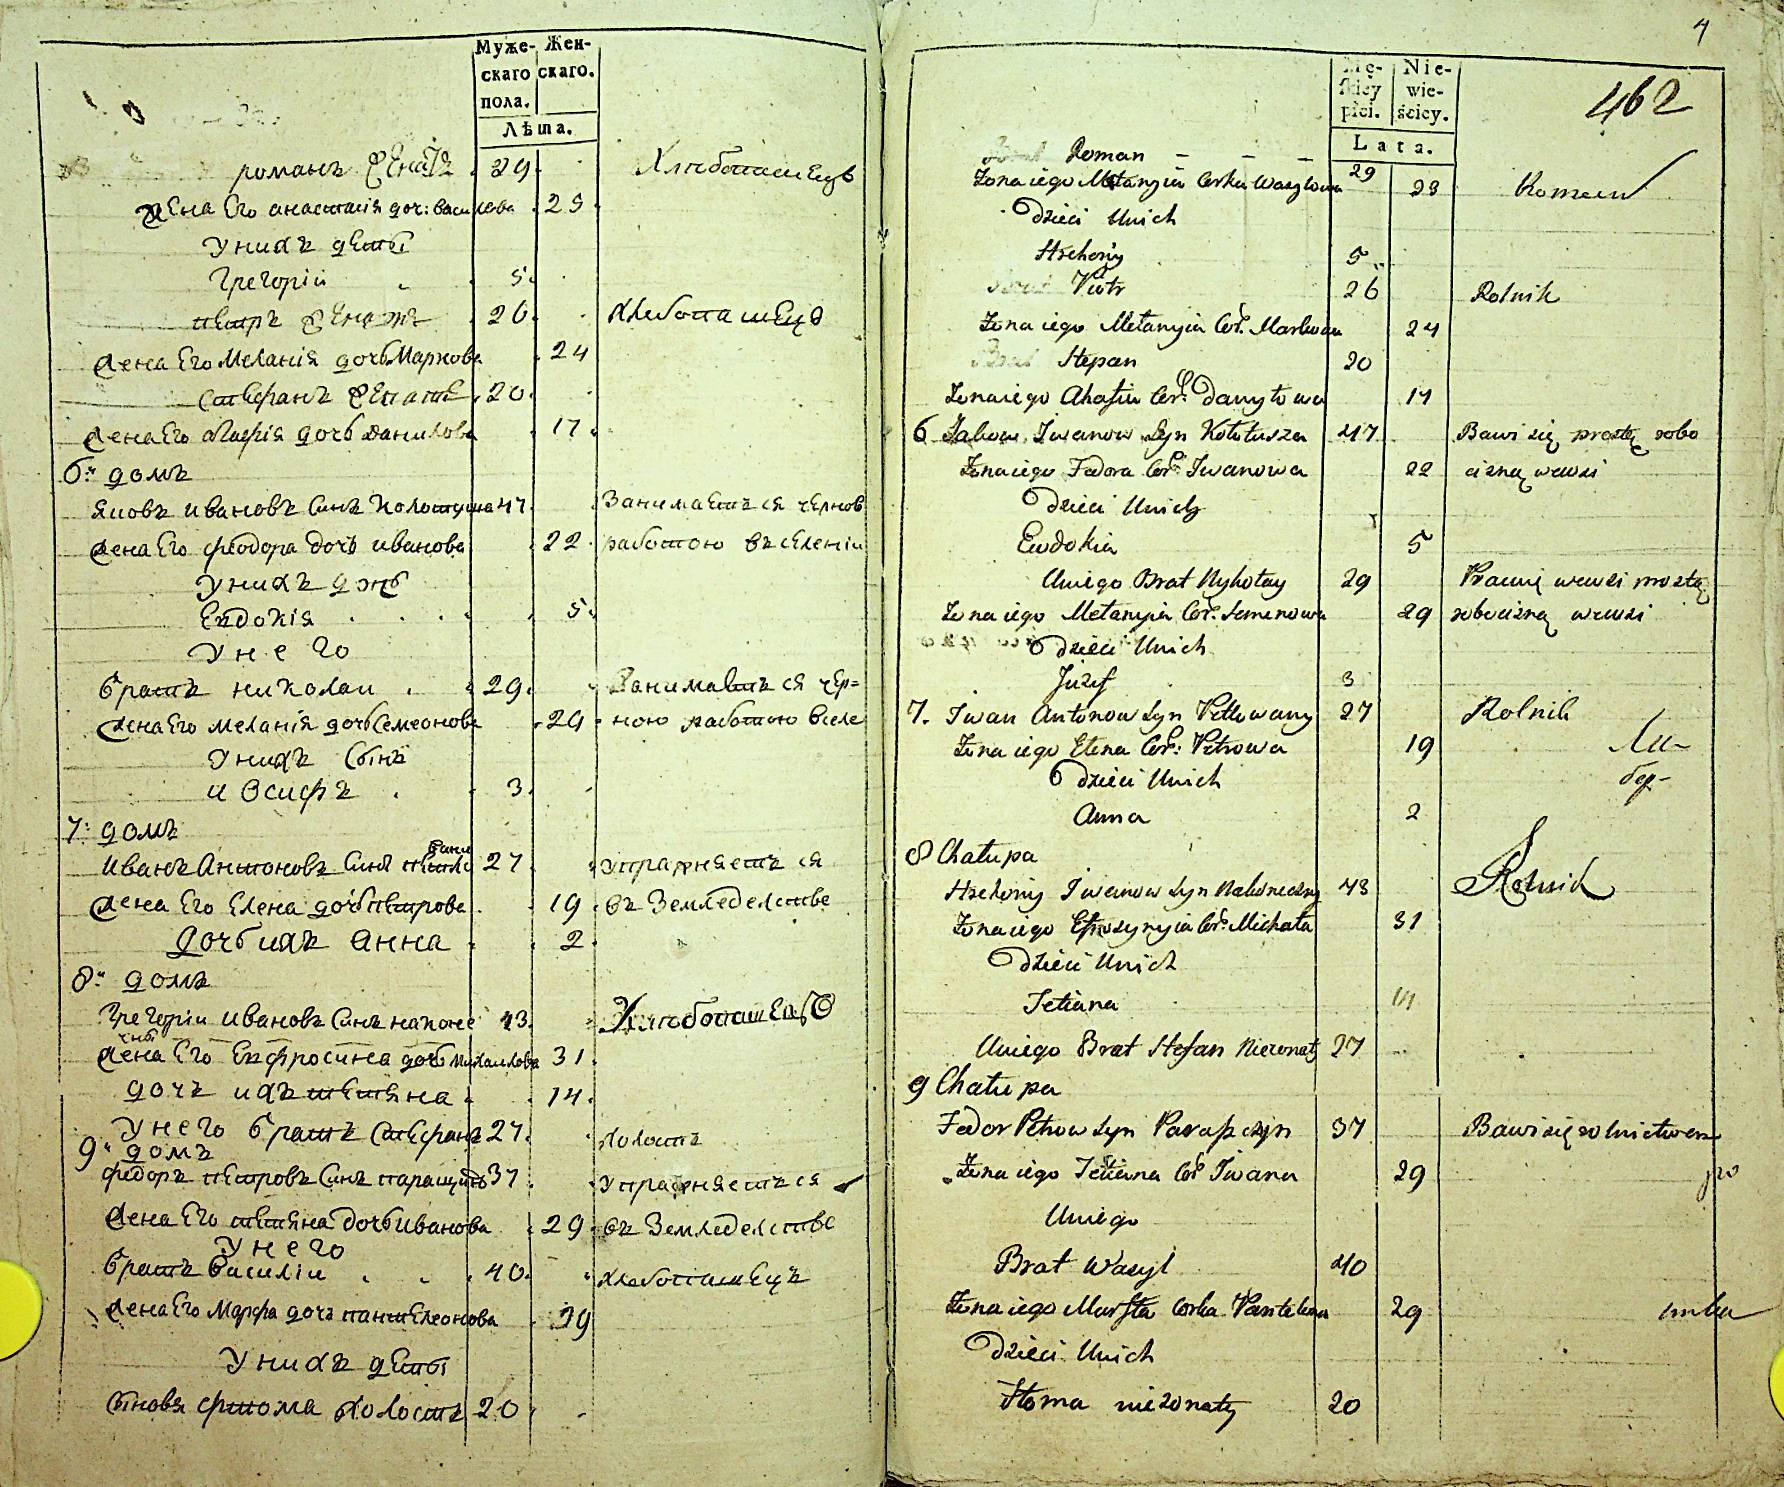 Муже- Жен-
скаго скаго.
пола.
Лѣта.
романъ женатъ 29 Хлѣбопашецъ
жена Его анастасія доч: василева 25
У нихъ дети
Григоріи 5
петръ женатъ 26 хлебопашецъ
жена Его Меланія дочь Маркова 24
Стефанъ женатъ 20
жена Его агафія дочь данилова 17
6й домъ
яковъ ивановъ синъ Колотуша 47 Занимается чернов
жена Его феодора дочь иванова 22 работою въ селеніи
У нихъ дочь
Евдокія 5
У него
братъ николаи 29 Занимается чер=
жена Его меланія дочь Семеонова 29 ною работою в селе
У нихъ сынъ
иосифъ 3
7: домъ
Иванъ Антоновъ Синъ 27 упражняется
жена Его Елена дочь петрова 19 въ Земледелстве
дочь ихъ Анна 2
8й домъ
Григоріи ивановъ Синъ наконе 43 Хлѣбопашецъ
чны
жена Его Евфросина дочь михаилова 31
дочь ихъ тетяна 14
У него братъ Стефанъ 27 холостъ
9й домъ
федоръ петровъ Синъ 37 упражняется
жена Его тетяна дочь иванова 29 въ Земледелстве
У него
братъ Василіи 40 хлебопашецъ
жена Его Марфа дочь пантелеонова 39
У нихъ дети
сыновя фтома холостъ 20
4
462
Mę- Nie-
skiey wie-
płci. ściey.
Lata.
Brat Roman 29
Żona iego córka Wasylowa 23
Dzieci Unich
Hrehory 5
Brat Piotr 26 Rolnik
Żona iego Melanyia Cór. Markowa 24
Brat Stepan 20
Żona iego Ahafia Cór. Danyłowa 17
6 Jakow Iwanow Syn Kołotusza 47 Bawi się prostą robo
Żona iego Fedora Cór. Iwanowa 22 cizną wewsi
Dzieci Unich
Ewdokia 5
Uniego Brat Mykołay 29 Pracuie wewsi prostą
Żona iego Melanyia Cór. Semenowa 29 robocizną wewsi
Dzieci Unich
Józef 3
7. Iwan Antonow Syn 27 Rolnik
Żona iego Elena Cór: Petrowa 19 Ли-
Dzieci Unich бер-
Anna 2
8 Chałupa
Hrehory Iwanow Syn Nakoneczny 43 Rolnik
Żona iego Cór. Michała 31
Dzieci Unich
Tetiana 14
Uniego Brat Stefan Nieżonaty 27
9 Chałupa
Fedor Petrow Syn 37 Bawi się rolnictwem
Żona iego Tetiana Cór Iwana 29
Uniego
Brat Wasyl 40
Żona iego Marfta córka Pantelona 29
Dzieci Unich
Ftoma nieżonaty 20